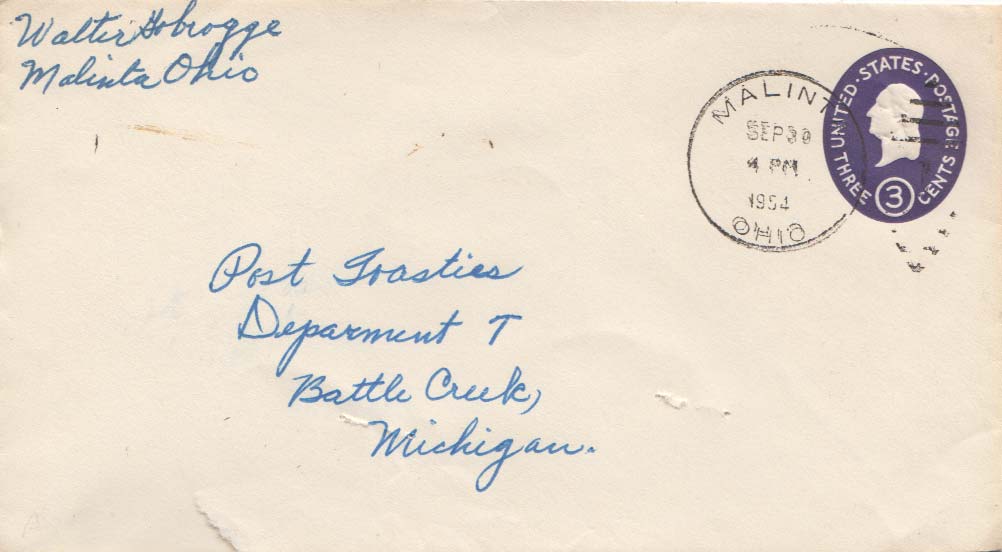 Walter Hobrogge
Malinta Ohio
MALINT
SEP 30
4 PM
1954
OHIO
UNITED · STATES · POSTAGE
THREE 3 CENTS
Post Toasties
Deparment T
Battle Creek,
Michigan.